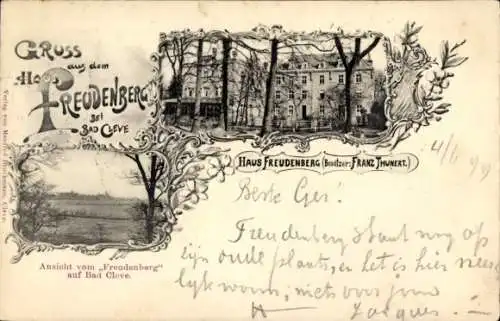 Gruss
aus dem
Freudenberg
bei
Bad Cleve
Haus Freudenberg (Besitzer: Franz Thunert.)
4/6 99
Beste Ger!
Freudenberg staat nog op
zijn oude plaats, en het is hier
niets voor jou
Jacques
Ansicht vom „Freudenberg"
auf Bad Cleve.